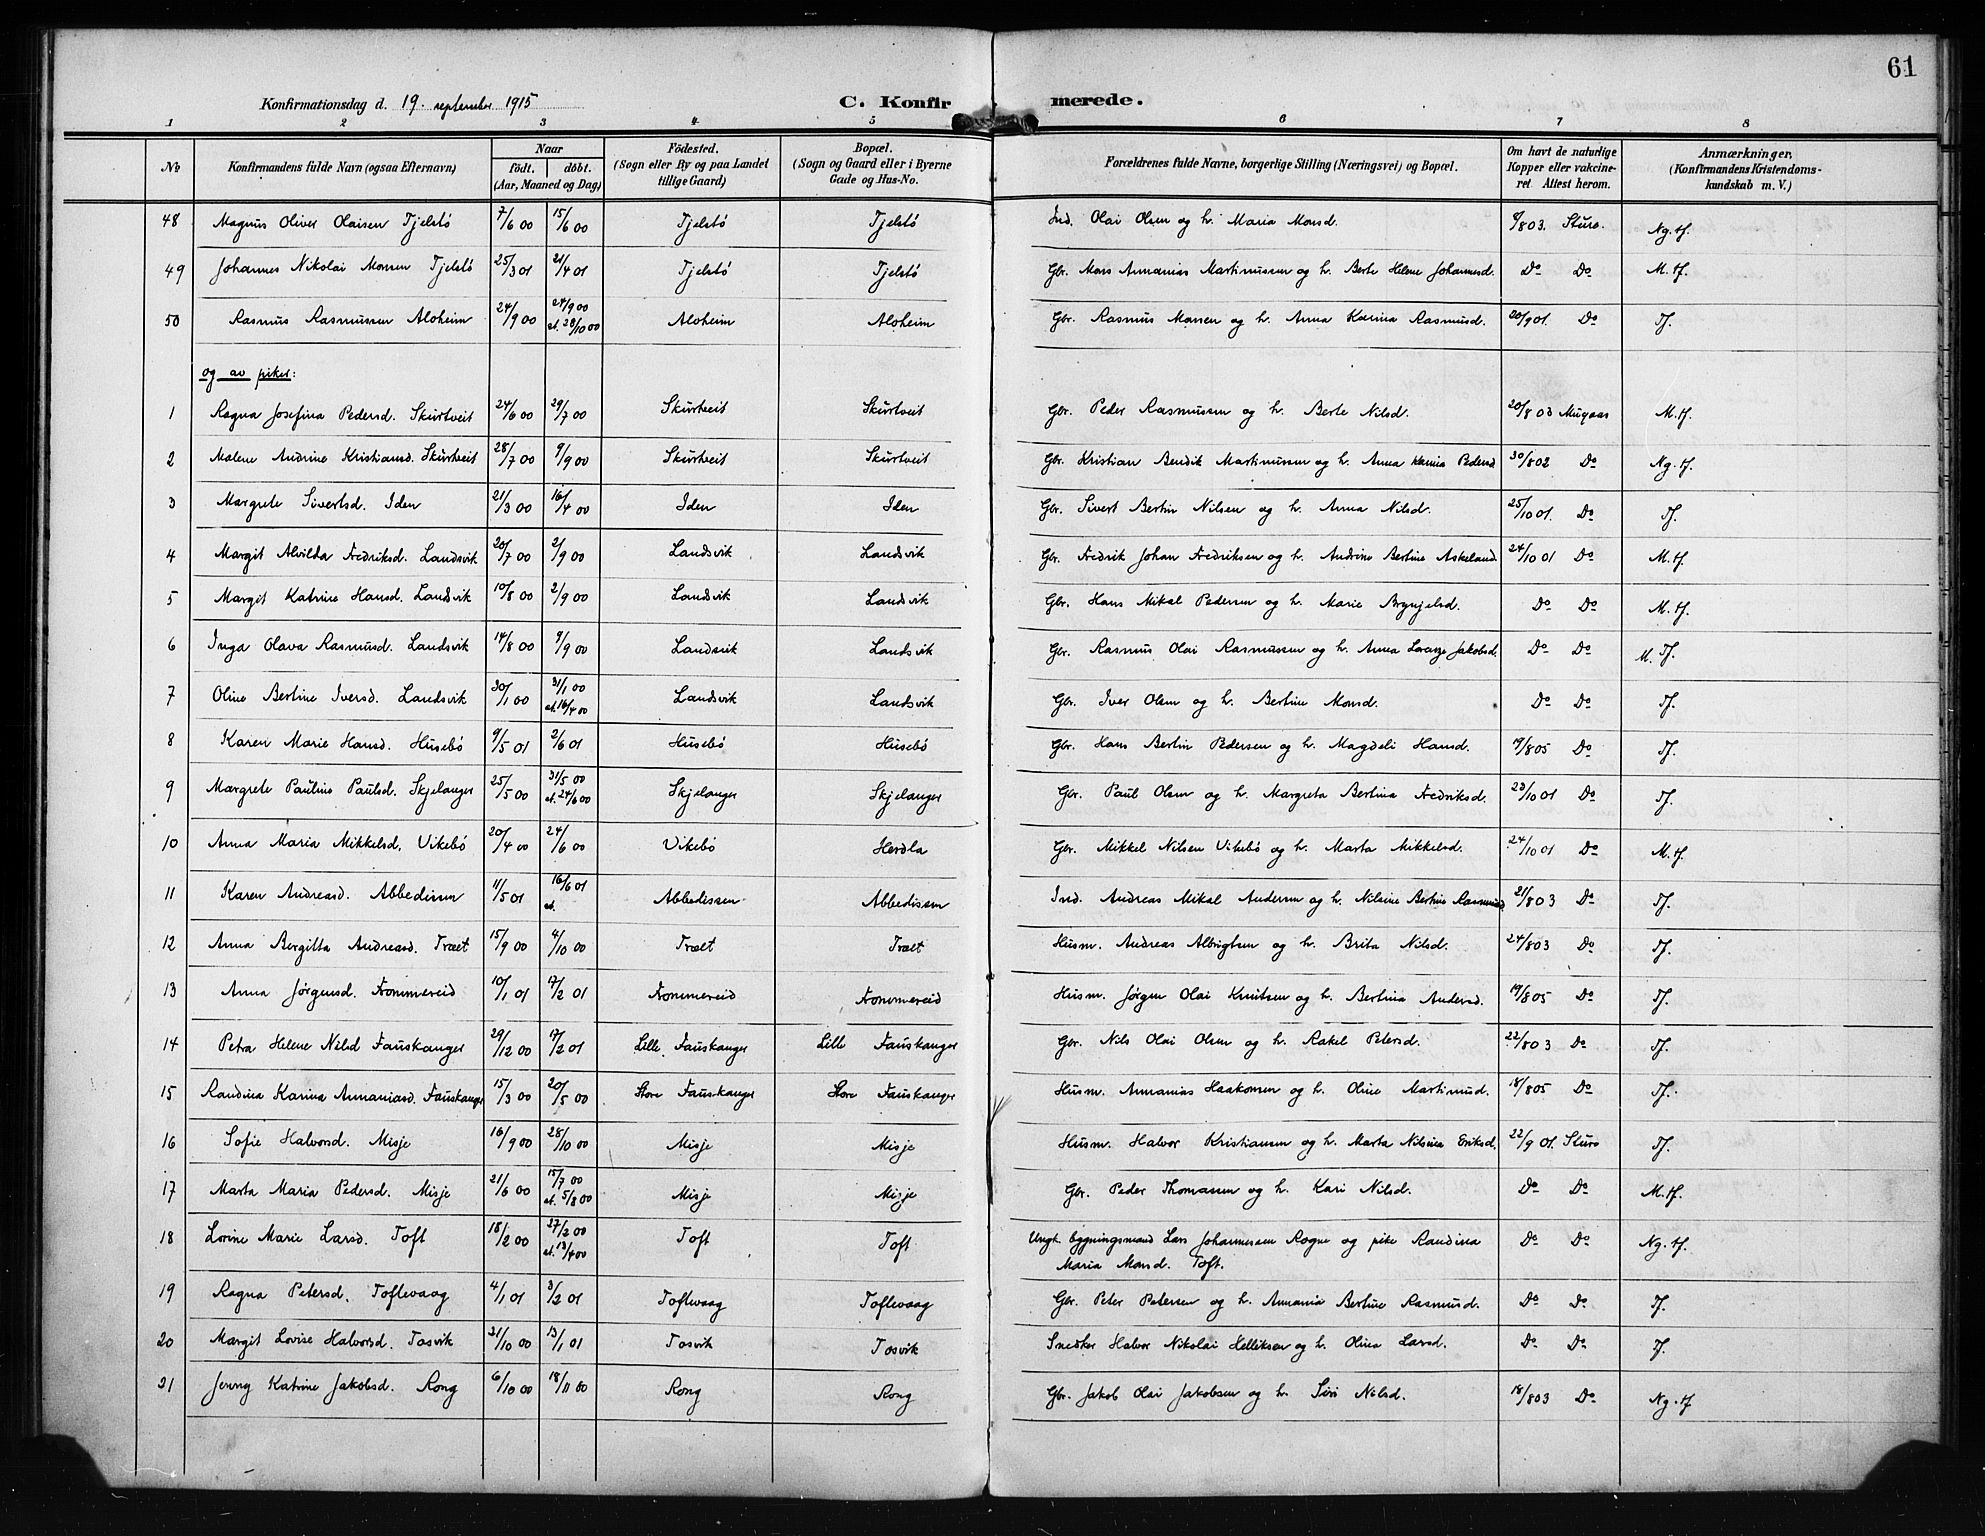 61
Konfirmationsdag d. 19. september 1915 C. Konfirmerede.
1 2 3 4 5 6 7 8
No Konfirmandens fulde Navn (ogsaa Efternavn) Naar födt. döbt. (Aar, Maaned og Dag) Födested. (Sogn eller By og paa Landet tillige Gaard) Bopæl. (Sogn og Gaard eller i Byerne Gade og Hus-No. Forældrenes fulde Navne, borgerlige Stilling (Næringsvei) og Bopæl. Om havt de naturlige Kopper eller vakcineret Attest herom. Anmærkninger, (Konfirmandens Kristendomskundskab m. V.)
48 Magnus Oliver Olaisen Tjelstö 7/6 00 15/6 00 Tjelstö Tjelstö Ind. Olai Olsen og h. Maria Monsd. 8/8 03. Sturo. Ng. tf.
49 Johannes Nikolai Monsen Tjelstö 25/3 01 21/4 01 Tjelstö Tjelstö Gbr. Mons Annanias Martinussen og h. Berte Helene Johannesd. Do Do M. tf.
50 Rasmus Rasmussen Aloheim 24/9 00 24/9 00 et. 28/10 00 Aloheim Aloheim Gbr. Rasmus Monsen og h. Anna Karina Rasmusd. 20/9 01. Do Tf.
og av piker:
1 Ragna Josefina Pedersd. Skurtveit 24/6 00 29/7 00 Skurtveit Skurtveit Gbr. Peder Rasmussen og h. Berte Nilsd. 20/8 03 Mugaas M. tf.
2 Malene Andrine Kristiansd. Skurtveit 28/7 00 9/9 00 Skurtveit Skurtveit Gbr. Kristian Bendik Martinussen og h. Anna Karina Pedersd 30/8 02 Do Ng. tf.
3 Margrete Sivertsd. Iden 21/3 00 16/4 00 Iden Iden Gbr. Sivert Bertin Nilsen og h. Anna Nilsd. 25/10 01. Do Tf.
4 Margit Alvilda Fredriksd. Landsvik 20/7 00 2/9 00 Landsvik Landsvik Gbr. Fredrik Johan Fredriksen og h. Andrine Bertine Askeland 24/10 01 Do M. tf.
5 Margit Katrine Hansd. Landsvik 10/8 00 2/9 00 Landsvik Landsvik Gbr. Hans Mikal Pedersen og h. Marie Brynjelsd. Do Do M. tf.
6 Inga Olava Rasmusd. Landsvik 14/8 00 9/9 00 Landsvik Landsvik Gbr. Rasmus Olai Rasmussen og h. Anna Loranze Jakobsd. Do Do M. Tf.
7 Oline Bertine Iversd. Landsvik 30/1 00 31/1 00 et. 16/4 00 Landsvik Landsvik Gbr. Iver Olsen og h. Bertine Monsd. Do Do Tf.
8 Karen Marie Hansd. Husebö 9/5 01 2/6 01 Husebö Husebö Gbr. Hans Bertin Pedersen og h. Magdeli Hansd. 19/8 05 Do Tf.
9 Margrete Pauline Paulsd. Skjelanger 25/5 00 31/5 00 et. 24/6 00 Skjelanger Skjelanger Gbr. Paul Olsen og h. Margreta Bertina Fredriksd. 23/10 01 Do Tf.
10 Anna Maria Mikkelsd. Vikebö 20/4 00 24/6 00 Vikebö Herdla Gbr. Mikkel Nilsen Vikebö og h. Marta Mikkelsd. 24/10 01 Do M. tf.
11 Karen Andreasd. Abbedissen 11/5 01 16/6 01 et. Abbedissen Abbedissen Ind. Andreas Mikal Andersen og h. Nilsine Bertine Rasmusd 21/8 03 Do Tf.
12 Anna Bergitta Andreasd. Træet 15/9 00 4/10 00 Træet Træet Husm. Andreas Albrigtsen og h. Brita Nilsd. 24/8 03 Do Tf.
13 Anna Jörgensd. Frommereid 10/1 01 17/2 01 Frommereid Frommereid Husm. Jörgen Olai Knutsen og h. Bertina Andersd. 19/8 05 Do Tf.
14 Petra Helene Nilsd Fauskanger 29/12 00 17/2 01 Lille. Fauskanger Lille Fauskanger Gbr. Nils Olai Olsen og h. Rakel Petersd. 22/8 03 Do Tf.
15 Randina Karina Annaniasd. Fauskanger 15/3 00 20/5 00 Store Fauskanger Store Fauskanger Husm. Annanias Haakonsen og h. Oline Martinusd. 18/8 05 Do Tf.
16 Sofie Halvorsd. Misje 16/9 00 28/10 00 Misje Misje Husm. Halvor Kristiansen og h. Marta Nilsina Eriksd. 22/9 01. Sturo Tf.
17 Marta Maria Pedersd. Misje 21/6 00 15/7 00 et. 5/8 00 Misje Misje Gbr. Peder Thomassen og h. Kari Nilsd. Do Do M. tf.
18 Lorine Marie Larsd. Toft 18/2 00 27/2 00 et. 13/4 00 Toft Toft Ungk. bygningsmand Lars Johannessen Rogne og pike Randina Maria Monsd. Toft. Do Do Ng. tf.
19 Ragna Petersd. Toftevaag 4/1 01 3/2 01 Toftevaag Toftevaag Gbr. Peter Petersen og h. Annania Bertine Rasmusd. Do Do Tf.
20 Margit Lovise Halvorsd. Tosvik 31/10 00 13/1 01 Tosvik Tosvik Snedker Halvor Nikolai Helliksen og h. Olina Larsd. Do Do Tf.
21 Jenny Katrine Jakobsd. Rong 6/10 00 18/11 00 Rong Rong Gbr. Jakob Olai Jakobsen og h. Siri Nilsd. 18/8 03 Do Ng. tf